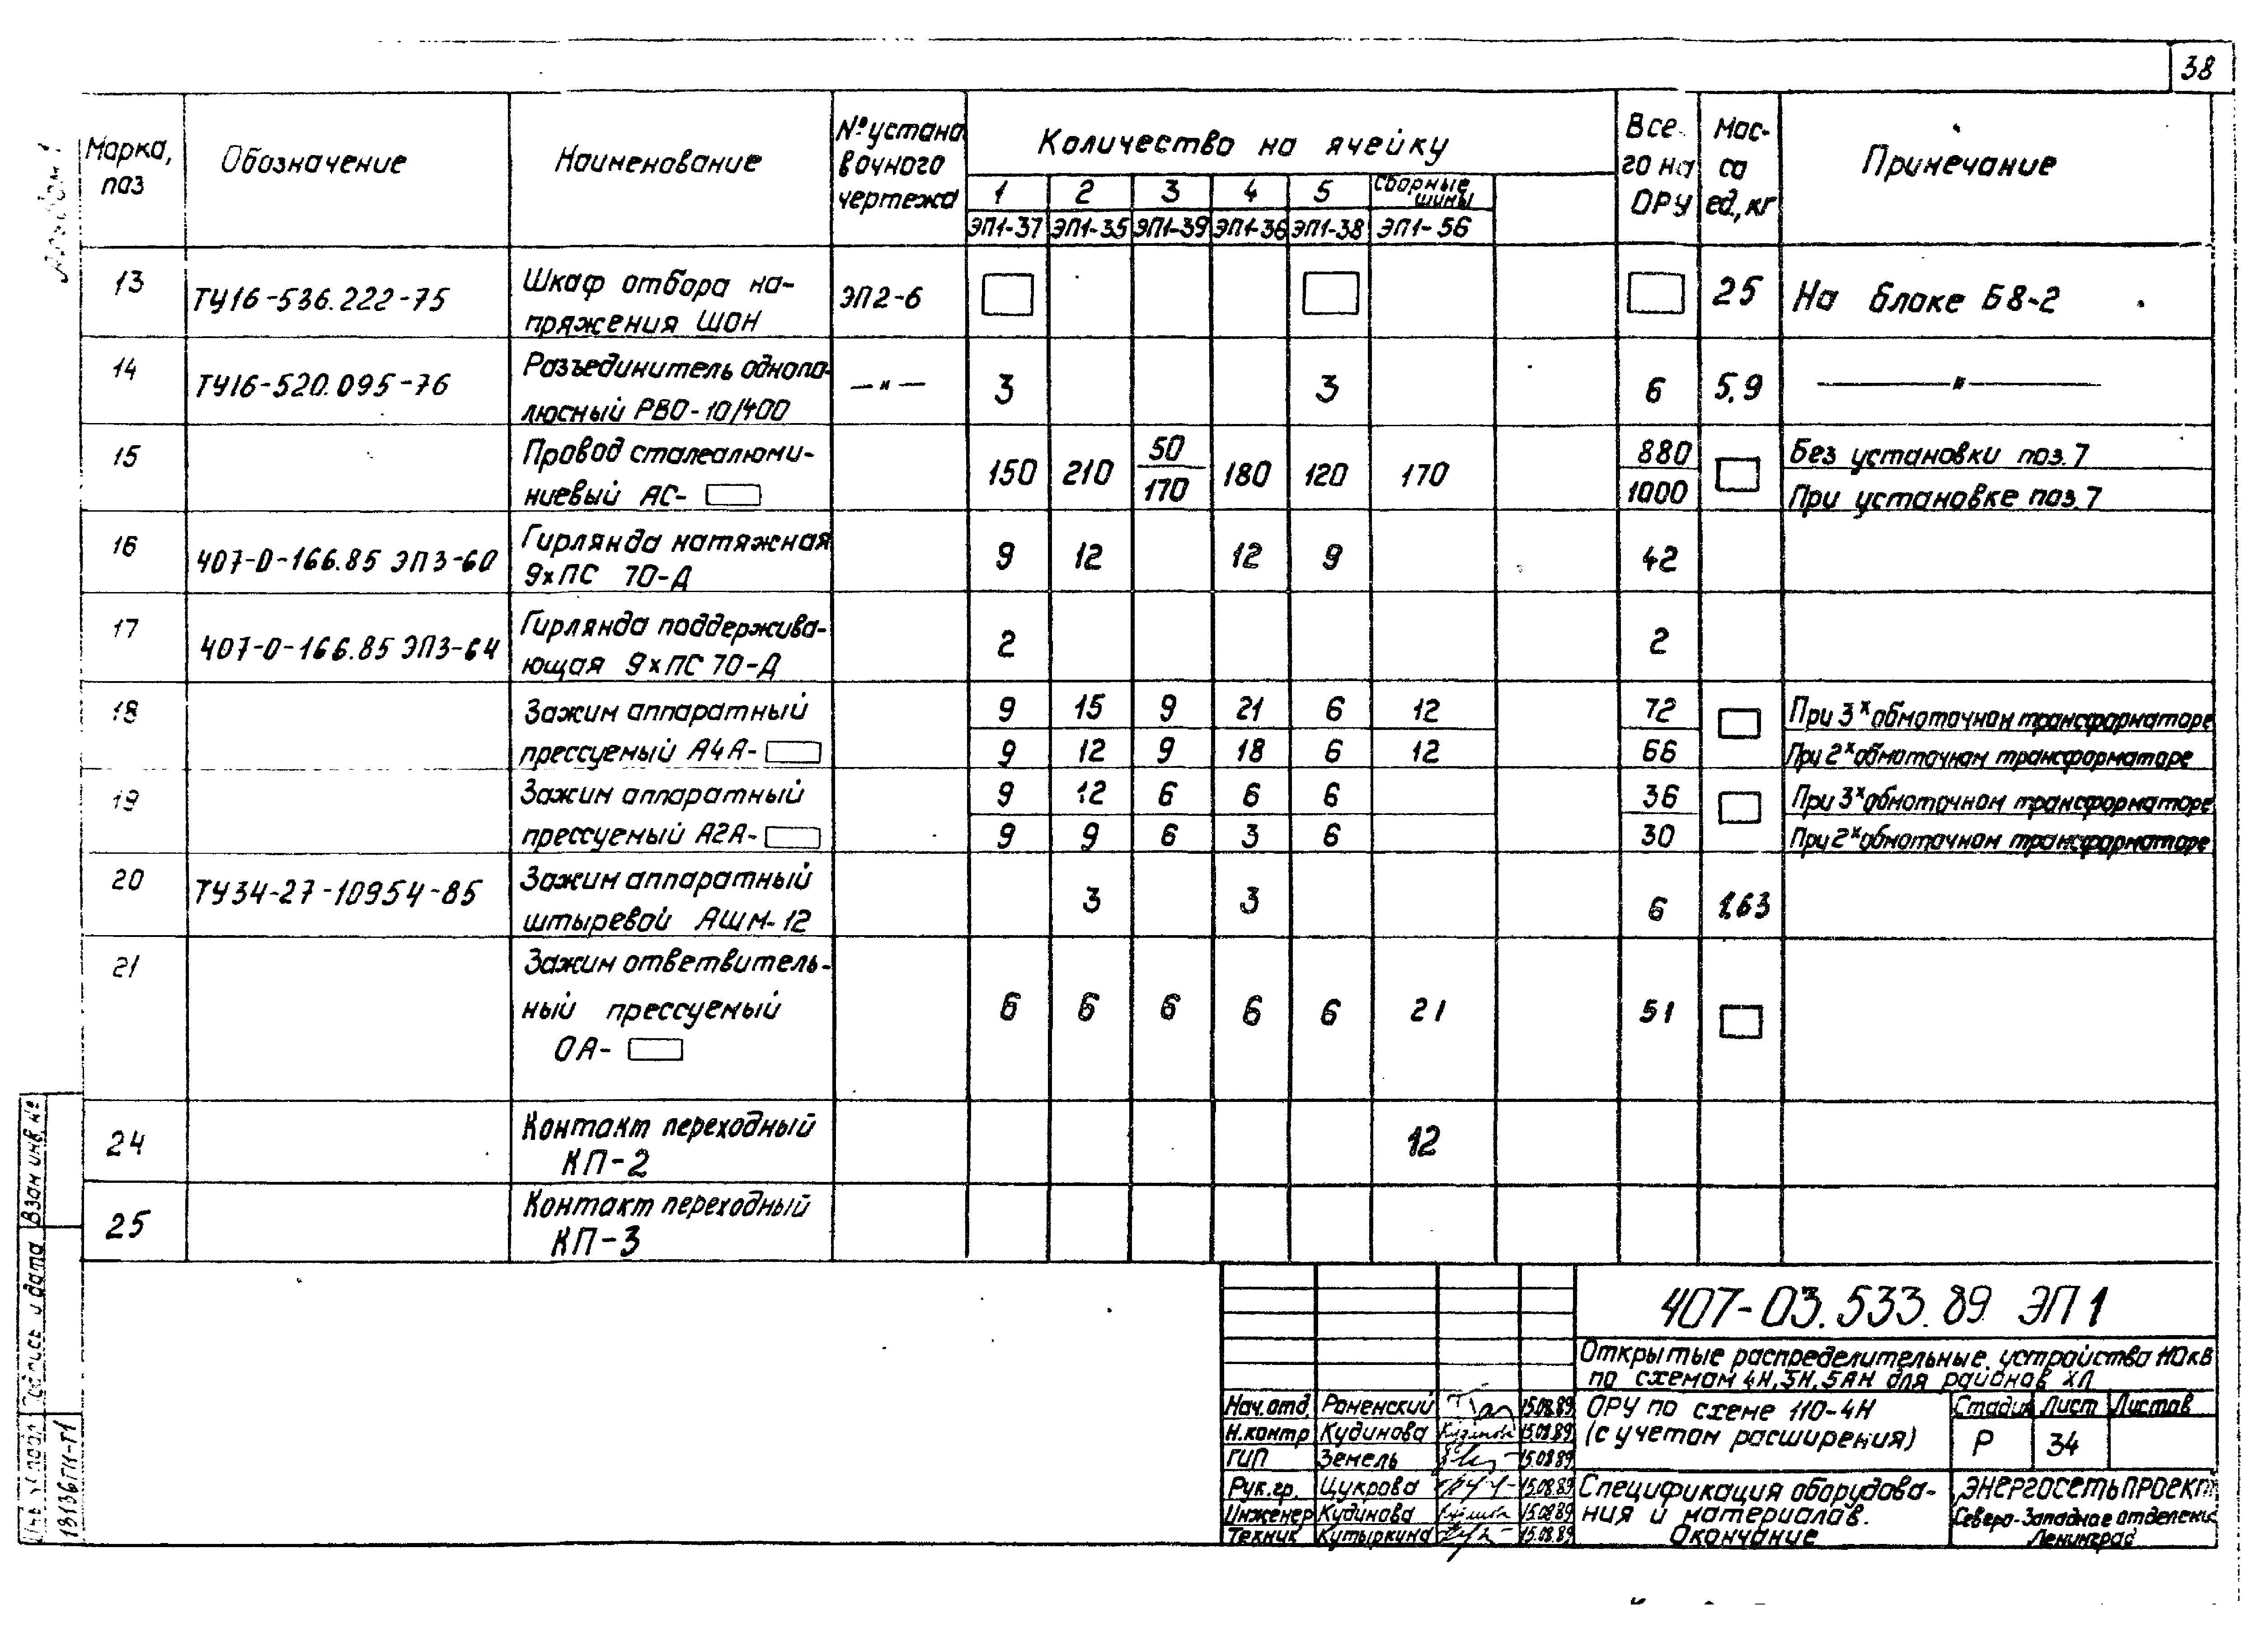 38
Альбом 1
Марка, поз
Обозначение
Наименование
№ установочного чертежа
Количество на ячейку
Всего на ОРУ
Масса ед, кг
Примечание
1 2 3 4 5 Сборные шины
ЭП1-37 ЭП1-35 ЭП1-39 ЭП1-36 ЭП1-38 ЭП1-56
13 ТУ16-536.222-75 Шкаф отбора на- ЭП2-6 25 На блоке Б8-2
пряжения ШОН
14 ТУ16-520.095-76 Разъединитель однопо- —"— 3 3 6 5,9 —"—
люсный РВО-10/400
15 Провод сталеалюми- 150 210 50 180 120 170 880 Без установки поз.7
ниевый АС- 170 1000 При установке поз.7
16 407-0-166.85 ЭП3-60 Гирлянда натяжная 9 12 12 9 42
9хПС 70-Д
17 407-0-166.85 ЭП3-64 Гирлянда поддержива- 2 2
ющая 9хПС 70-Д
18 Зажим аппаратный 9 15 9 21 6 12 72 При 3х обмоточном трансформаторе
прессуемый А4А- 9 12 9 18 6 12 66 При 2х обмоточном трансформаторе
19 Зажим аппаратный 9 12 6 6 6 36 При 3х обмоточном трансформаторе
прессуемый А2А- 9 9 6 3 6 30 При 2х обмоточном трансформаторе
20 ТУ34-27-10954-85 Зажим аппаратный 3 3 6 1,63
штыревой АШМ-12
21 Зажим ответвитель-
ный прессуемый 6 6 6 6 6 21 51
ОА-
24 Контакт переходный 12
КП-2
25 Контакт переходный
КП-3
407-03.533.89 ЭП1
Открытые распределительные устройства 110кВ
по схемам 4Н, 5Н, 5АН для районов ХЛ
Нач.отд. Роменский 15.08.89
Н.контр Кудинова 15.08.89
ГИП Земель 15.08.89
Рук.гр. Цукрова 15.08.89
Инженер Кудинова 15.08.89
Техник Кутыркина 15.08.89
ОРУ по схеме 110-4Н
(с учетом расширения)
Стадия Лист Листов
Р 34
Спецификация оборудова-
ния и материалов.
Окончание
ЭНЕРГОСЕТЬПРОЕКТ
Северо-Западное отделение
Ленинград
Взам инв. №
Подпись и дата
Инв. № подл